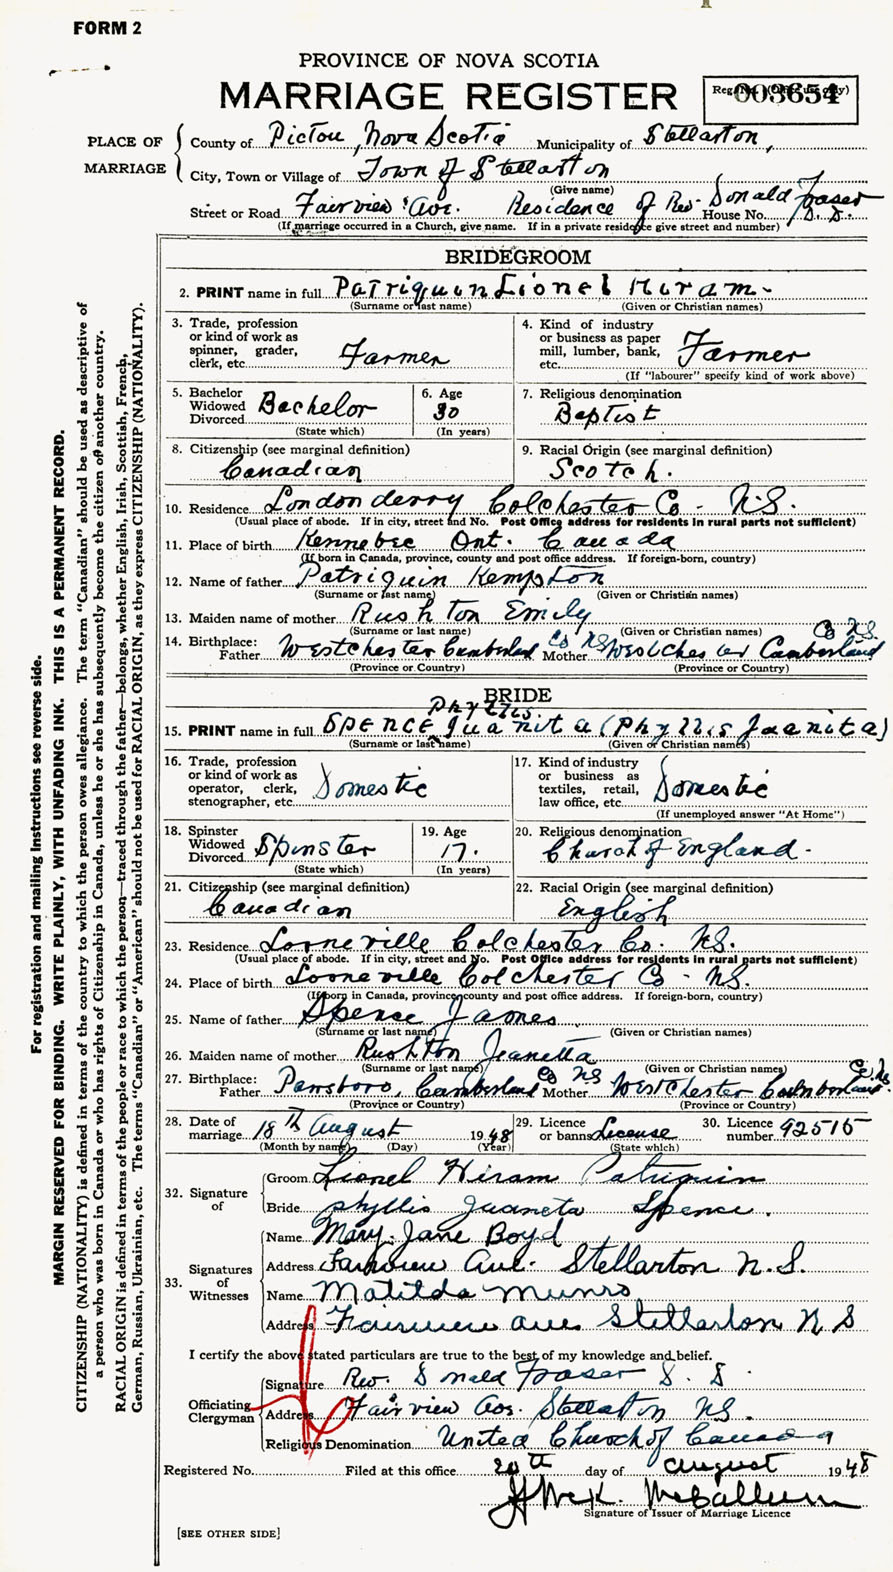 FORM 2
PROVINCE OF NOVA SCOTIA
MARRIAGE REGISTER
Reg. No. (Office use only)
003654
PLACE OF MARRIAGE
County of Pictou, Nova Scotia Municipality of Stellarton,
City, Town or Village of Town of Stellarton
(Give name)
Street or Road Fairview Ave. Residence of Rev. Donald Fraser House No. D. D.
(If marriage occurred in a Church, give name. If in a private residence give street and number)
BRIDEGROOM
2. PRINT name in full Patriquin Lionel Hiram.
(Surname or last name) (Given or Christian names)
3. Trade, profession or kind of work as spinner, grader, clerk, etc. Farmer
4. Kind of industry or business as paper mill, lumber, bank, etc. Farmer
(If "labourer" specify kind of work above)
5. Bachelor Widowed Divorced Bachelor
(State which)
6. Age 30
(In years)
7. Religious denomination Baptist
8. Citizenship (see marginal definition) Canadian
9. Racial Origin (see marginal definition) Scotch.
10. Residence Londonderry Colchester Co - N.S.
(Usual place of abode. If in city, street and No. Post Office address for residents in rural parts not sufficient)
11. Place of birth Kennebec Ont. Canada
(If born in Canada, province, county and post office address. If foreign-born, country)
12. Name of father Patriquin Kempton
(Surname or last name) (Given or Christian names)
13. Maiden name of mother Rushton Emily
(Surname or last name) (Given or Christian names)
14. Birthplace: Father Westchester Cumberland Co NS Mother Westchester Cumberland Co N.S.
(Province or Country) (Province or Country)
BRIDE
Phyllis
15. PRINT name in full SPENCE Juanita (Phyllis Juanita)
(Surname or last name) (Given or Christian names)
16. Trade, profession or kind of work as operator, clerk, stenographer, etc. Domestic
17. Kind of industry or business as textiles, retail, law office, etc. Domestic
(If unemployed answer "At Home")
18. Spinster Widowed Divorced Spinster
(State which)
19. Age 17.
(In years)
20. Religious denomination Church of England.
21. Citizenship (see marginal definition) Canadian
22. Racial Origin (see marginal definition) English
23. Residence Lorneville Colchester Co. N.S.
(Usual place of abode. If in city, street and No. Post Office address for residents in rural parts not sufficient)
24. Place of birth Lorneville Colchester Co - N.S.
(If born in Canada, province, county and post office address. If foreign-born, country)
25. Name of father Spence James
(Surname or last name) (Given or Christian names)
26. Maiden name of mother Rushton Jeanetta
(Surname or last name) (Given or Christian names)
27. Birthplace: Father Parrsboro, Cumberland Co NS Mother Westchester Cumberland Co. N.S.
(Province or Country) (Province or Country)
28. Date of marriage 18th August 1948
(Month by name) (Day) (Year)
29. Licence or banns License
(State which)
30. Licence number 92515
32. Signature of
Groom Lionel Hiram Patriquin
Bride Phyllis Juaneta Spence.
33. Signatures of Witnesses
Name Mary Jane Boyd
Address Fairview Ave. Stellarton N.S.
Name Matilda Munro
Address Fairview ave Stellarton N S
I certify the above stated particulars are true to the best of my knowledge and belief.
Officiating Clergyman
Signature Rev. Donald Fraser D. D.
Address Fairview Ave. Stellarton NS.
Religious Denomination United Church of Canada
Registered No. Filed at this office 20th day of August 1948
McCallum
Signature of Issuer of Marriage Licence
[SEE OTHER SIDE]
For registration and mailing instructions see reverse side.
MARGIN RESERVED FOR BINDING. WRITE PLAINLY, WITH UNFADING INK. THIS IS A PERMANENT RECORD.
CITIZENSHIP (NATIONALITY) is defined in terms of the country to which the person owes allegiance. The term "Canadian" should be used as descriptive of
a person who was born in Canada or who has rights of Citizenship in Canada, unless he or she has subsequently become the citizen of another country.
RACIAL ORIGIN is defined in terms of the people or race to which the person—traced through the father—belongs, whether English, Irish, Scottish, French,
German, Russian, Ukrainian, etc. The terms "Canadian" or "American" should not be used for RACIAL ORIGIN, as they express CITIZENSHIP (NATIONALITY).